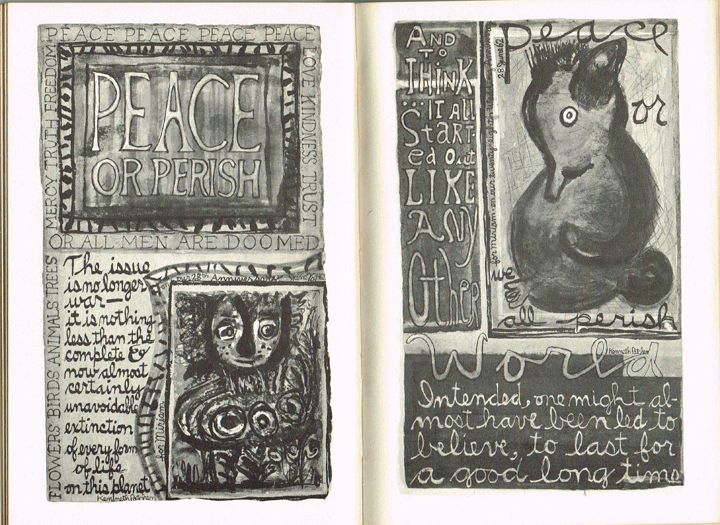 PEACE PEACE PEACE PEACE PEACE
MERCY TRUTH FREEDOM
LOVE KINDNESS TRUST
PEACE
OR PERISH
OR ALL MEN ARE DOOMED
FLOWERS BIRDS ANIMALS TREES
The issue
is no longer
war—
it is nothing
less than the
complete &
now almost
certainly
unavoidable
extinction
of every form
of life
on this planet
Kenneth Patchen
our 28th Anniversary
for Miriam
AND
TO
THINK
...IT All
Start-
ed Out
LIKE
ANY
Other
World
Kenneth Patchen
Intended, one might al-
most have been led to
believe, to last for
a good long time
peace
or
we
all perish
28 June 62
for Miriam on our twenty-eighth Wedding Anniversary